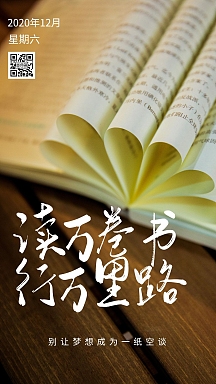 2020年12月
星期六
读万卷书
行万里路
别让梦想成为一纸空谈